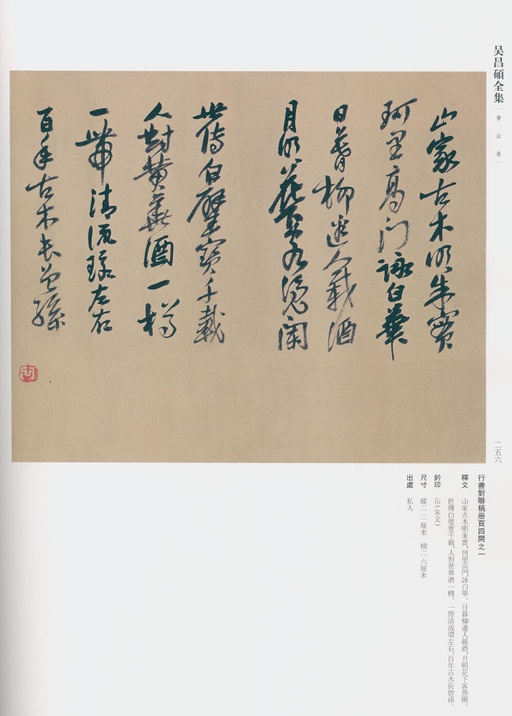 吴昌碩全集
書法卷
山家古木明朱實
珂里高門詠白華
日暮柳邊人載酒
月明花
世傳白璧寶千載
人對黄華酒一樽
一帶清流環左右
百年古木長曾孫
缶
二五六
行書對聯稿册頁四開之一
釋文 山家古木明朱實，珂里高門詠白華。日暮柳邊人載酒，月明花下
世傳白璧寶千載，人對黄華酒一樽。一帶清流環左右，百年古木長曾孫。
鈐印 缶（朱文）
尺寸 縱二二厘米 橫二六厘米
出處 私人